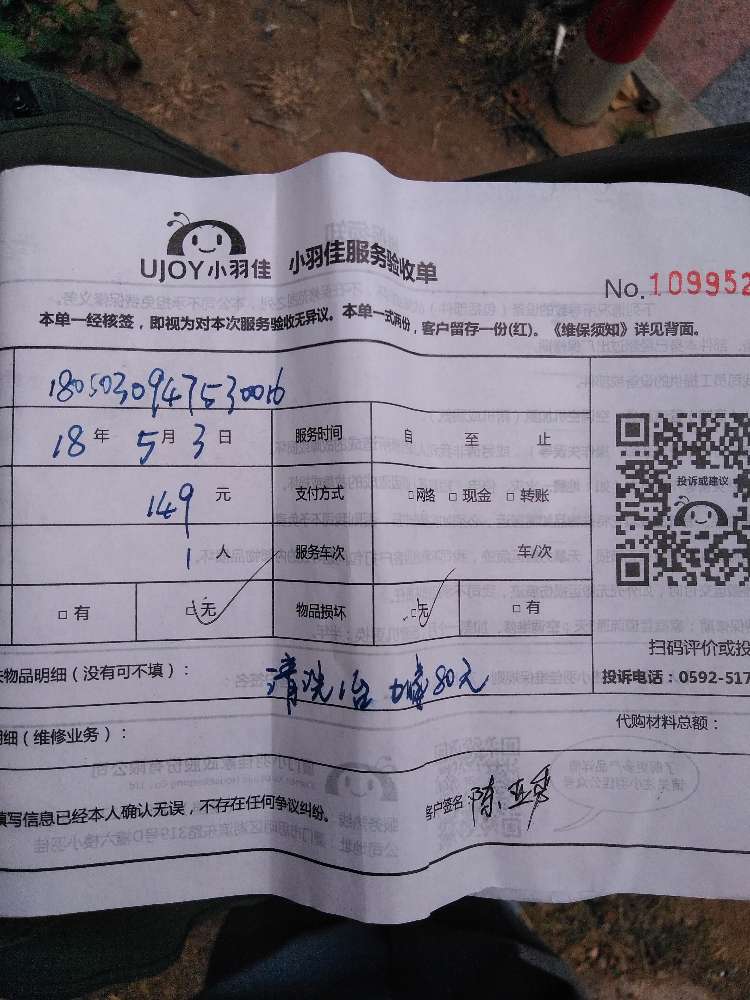 UJOY小羽佳 小羽佳服务验收单
No.109952
本单一经核签，即视为对本次服务验收无异议。本单一式两份，客户留存一份(红)。《维保须知》详见背面。
1805030947530016
18年5月3日 服务时间 自 至 止
149元 支付方式 □网络 □现金 □转账
1人 服务车次 车/次
□有 □无 物品损坏 □无 □有
投诉或建议
扫码评价或投
物品明细（没有可不填）： 清洗1台 80元
投诉电话：0592-517
细（维修业务）： 代购材料总额：
填写信息已经本人确认无误，不存在任何争议纠纷。 客户签名：陈